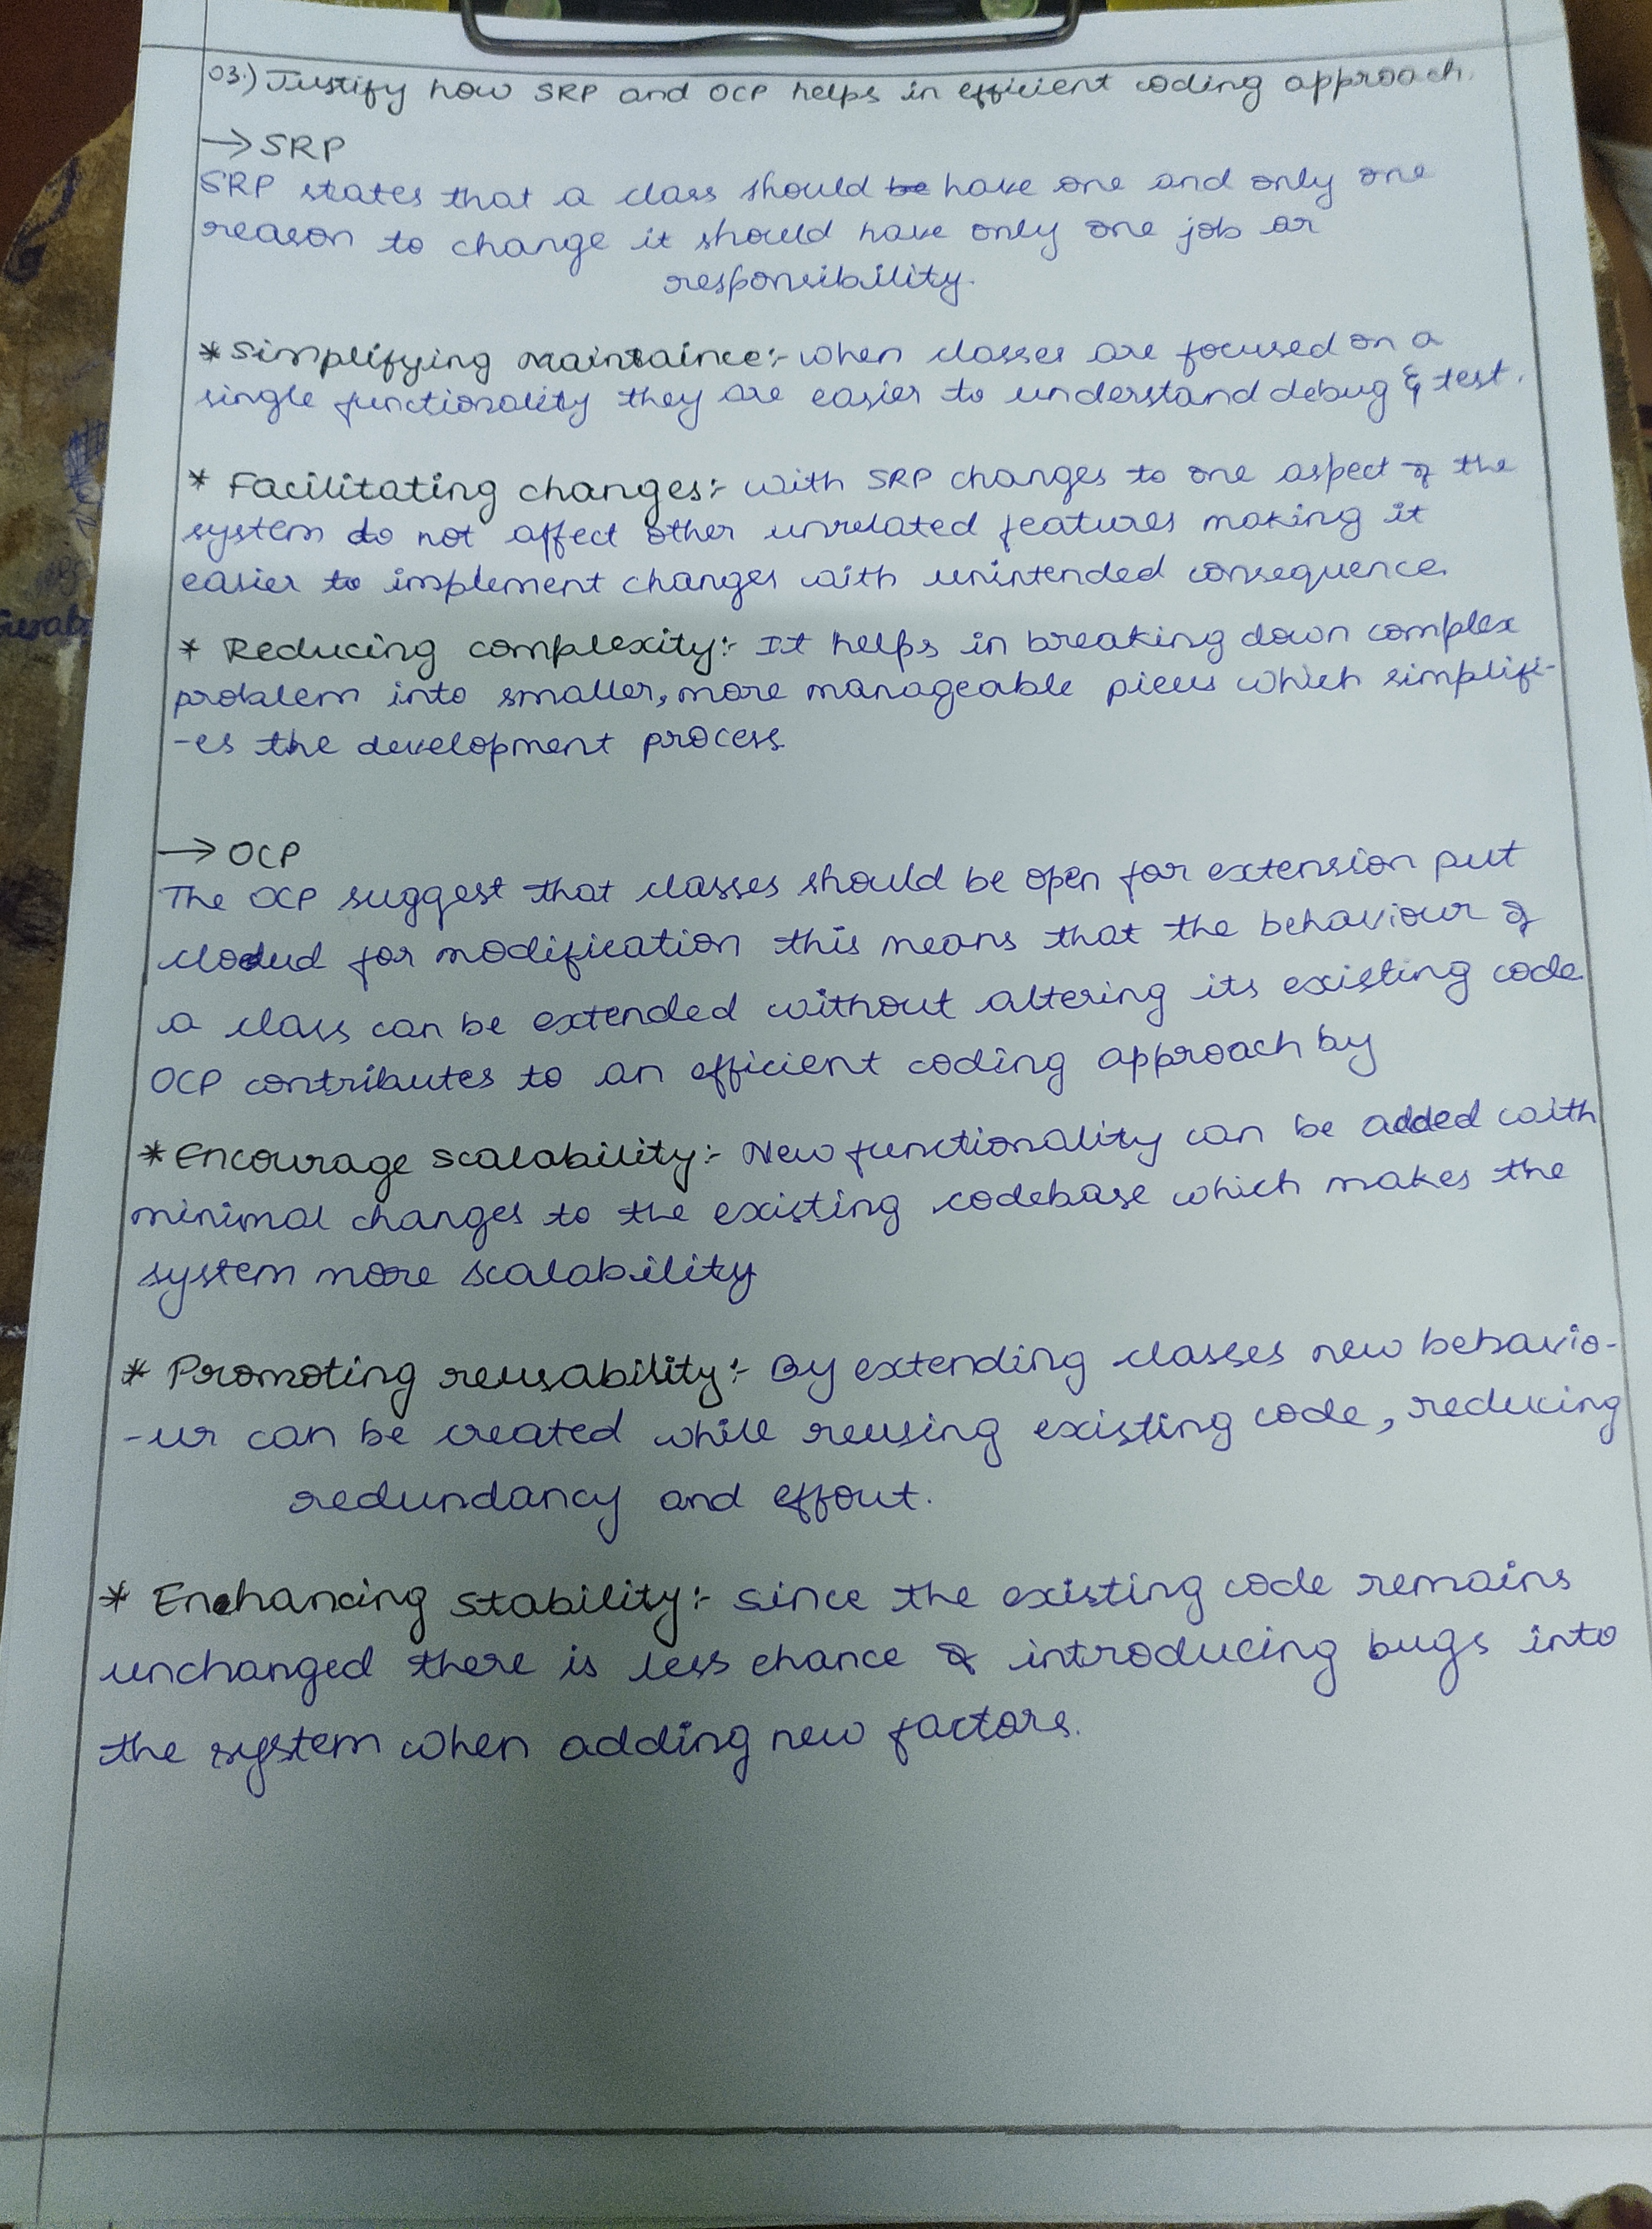 03.) Justify how SRP and OCP helps in efficient coding approach.
→ SRP
SRP states that a class should be have one and only one
reason to change it should have only one job or
responsibility.
* Simplifying maintaince:- when classes are focused on a
single functionality they are easier to understand debug & test.
* Facilitating changes:- with SRP changes to one aspect of the
system do not affect other unrelated features making it
easier to implement changes with unintended consequence.
* Reducing complexity:- It helps in breaking down complex
problem into smaller, more manageable pieces which simplifi-
-es the development process
→ OCP
The OCP suggest that classes should be open for extension put
closed for modification this means that the behaviour of
a class can be extended without altering its existing code.
OCP contributes to an efficient coding approach by
* Encourage scalability:- New functionality can be added with
minimal changes to the existing codebase which makes the
system more scalability
* Promoting reusability:- By extending classes new behavio-
-ur can be created while reusing existing code, reducing
redundancy and effout.
* Enhancing stability:- since the existing code remains
unchanged there is less chance of introducing bugs into
the system when adding new factors.